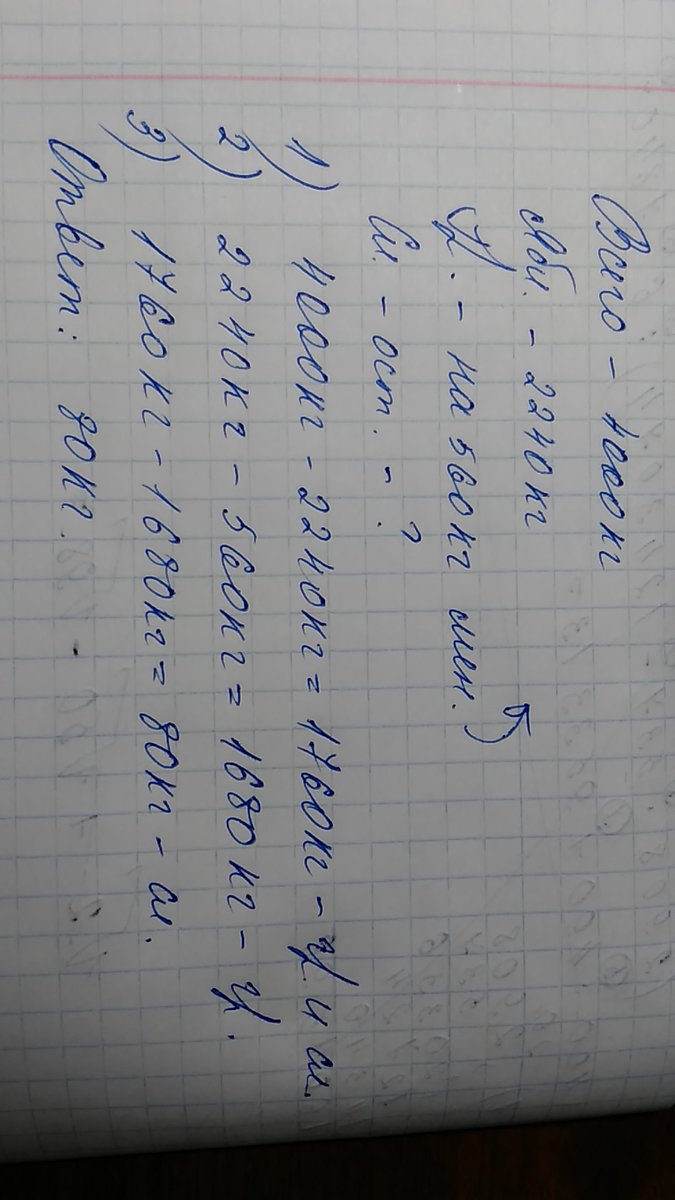 Всего - 4000кг
Ябл. - 2240кг
Гр. - на 560кг мен.
Сл. - ост. - ?
1) 4000кг - 2240кг = 1760кг - гр. и сл.
2) 2240кг - 560кг = 1680кг - гр.
3) 1760кг - 1680кг = 80кг - сл.
Ответ: 80кг.